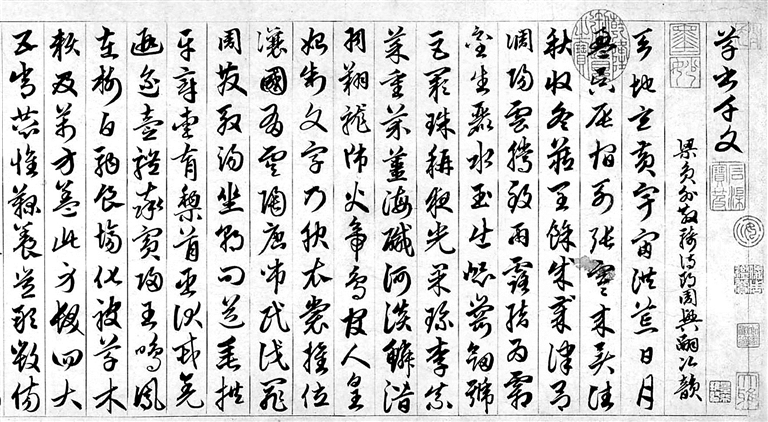 草書千文
梁負外散騎侍郎周興嗣次韻
天地玄黃宇宙洪荒日月
盈昃辰宿列張寒來暑往
秋收冬藏閏餘成歲律呂
調陽雲騰致雨露結為霜
金生麗水玉出崑崗劒號
巨闕珠稱夜光果珍李柰
菜重芥薑海鹹河淡鱗潛
羽翔龍師火帝鳥官人皇
始制文字乃服衣裳推位
讓國有虞陶唐弔民伐罪
周發殷湯坐朝問道垂拱
平章愛育黎首臣伏戎羌
遐邇壹體率賓歸王鳴鳳
在樹白駒食場化被草木
賴及萬方蓋此身髮四大
五常恭惟鞠養豈敢毀傷